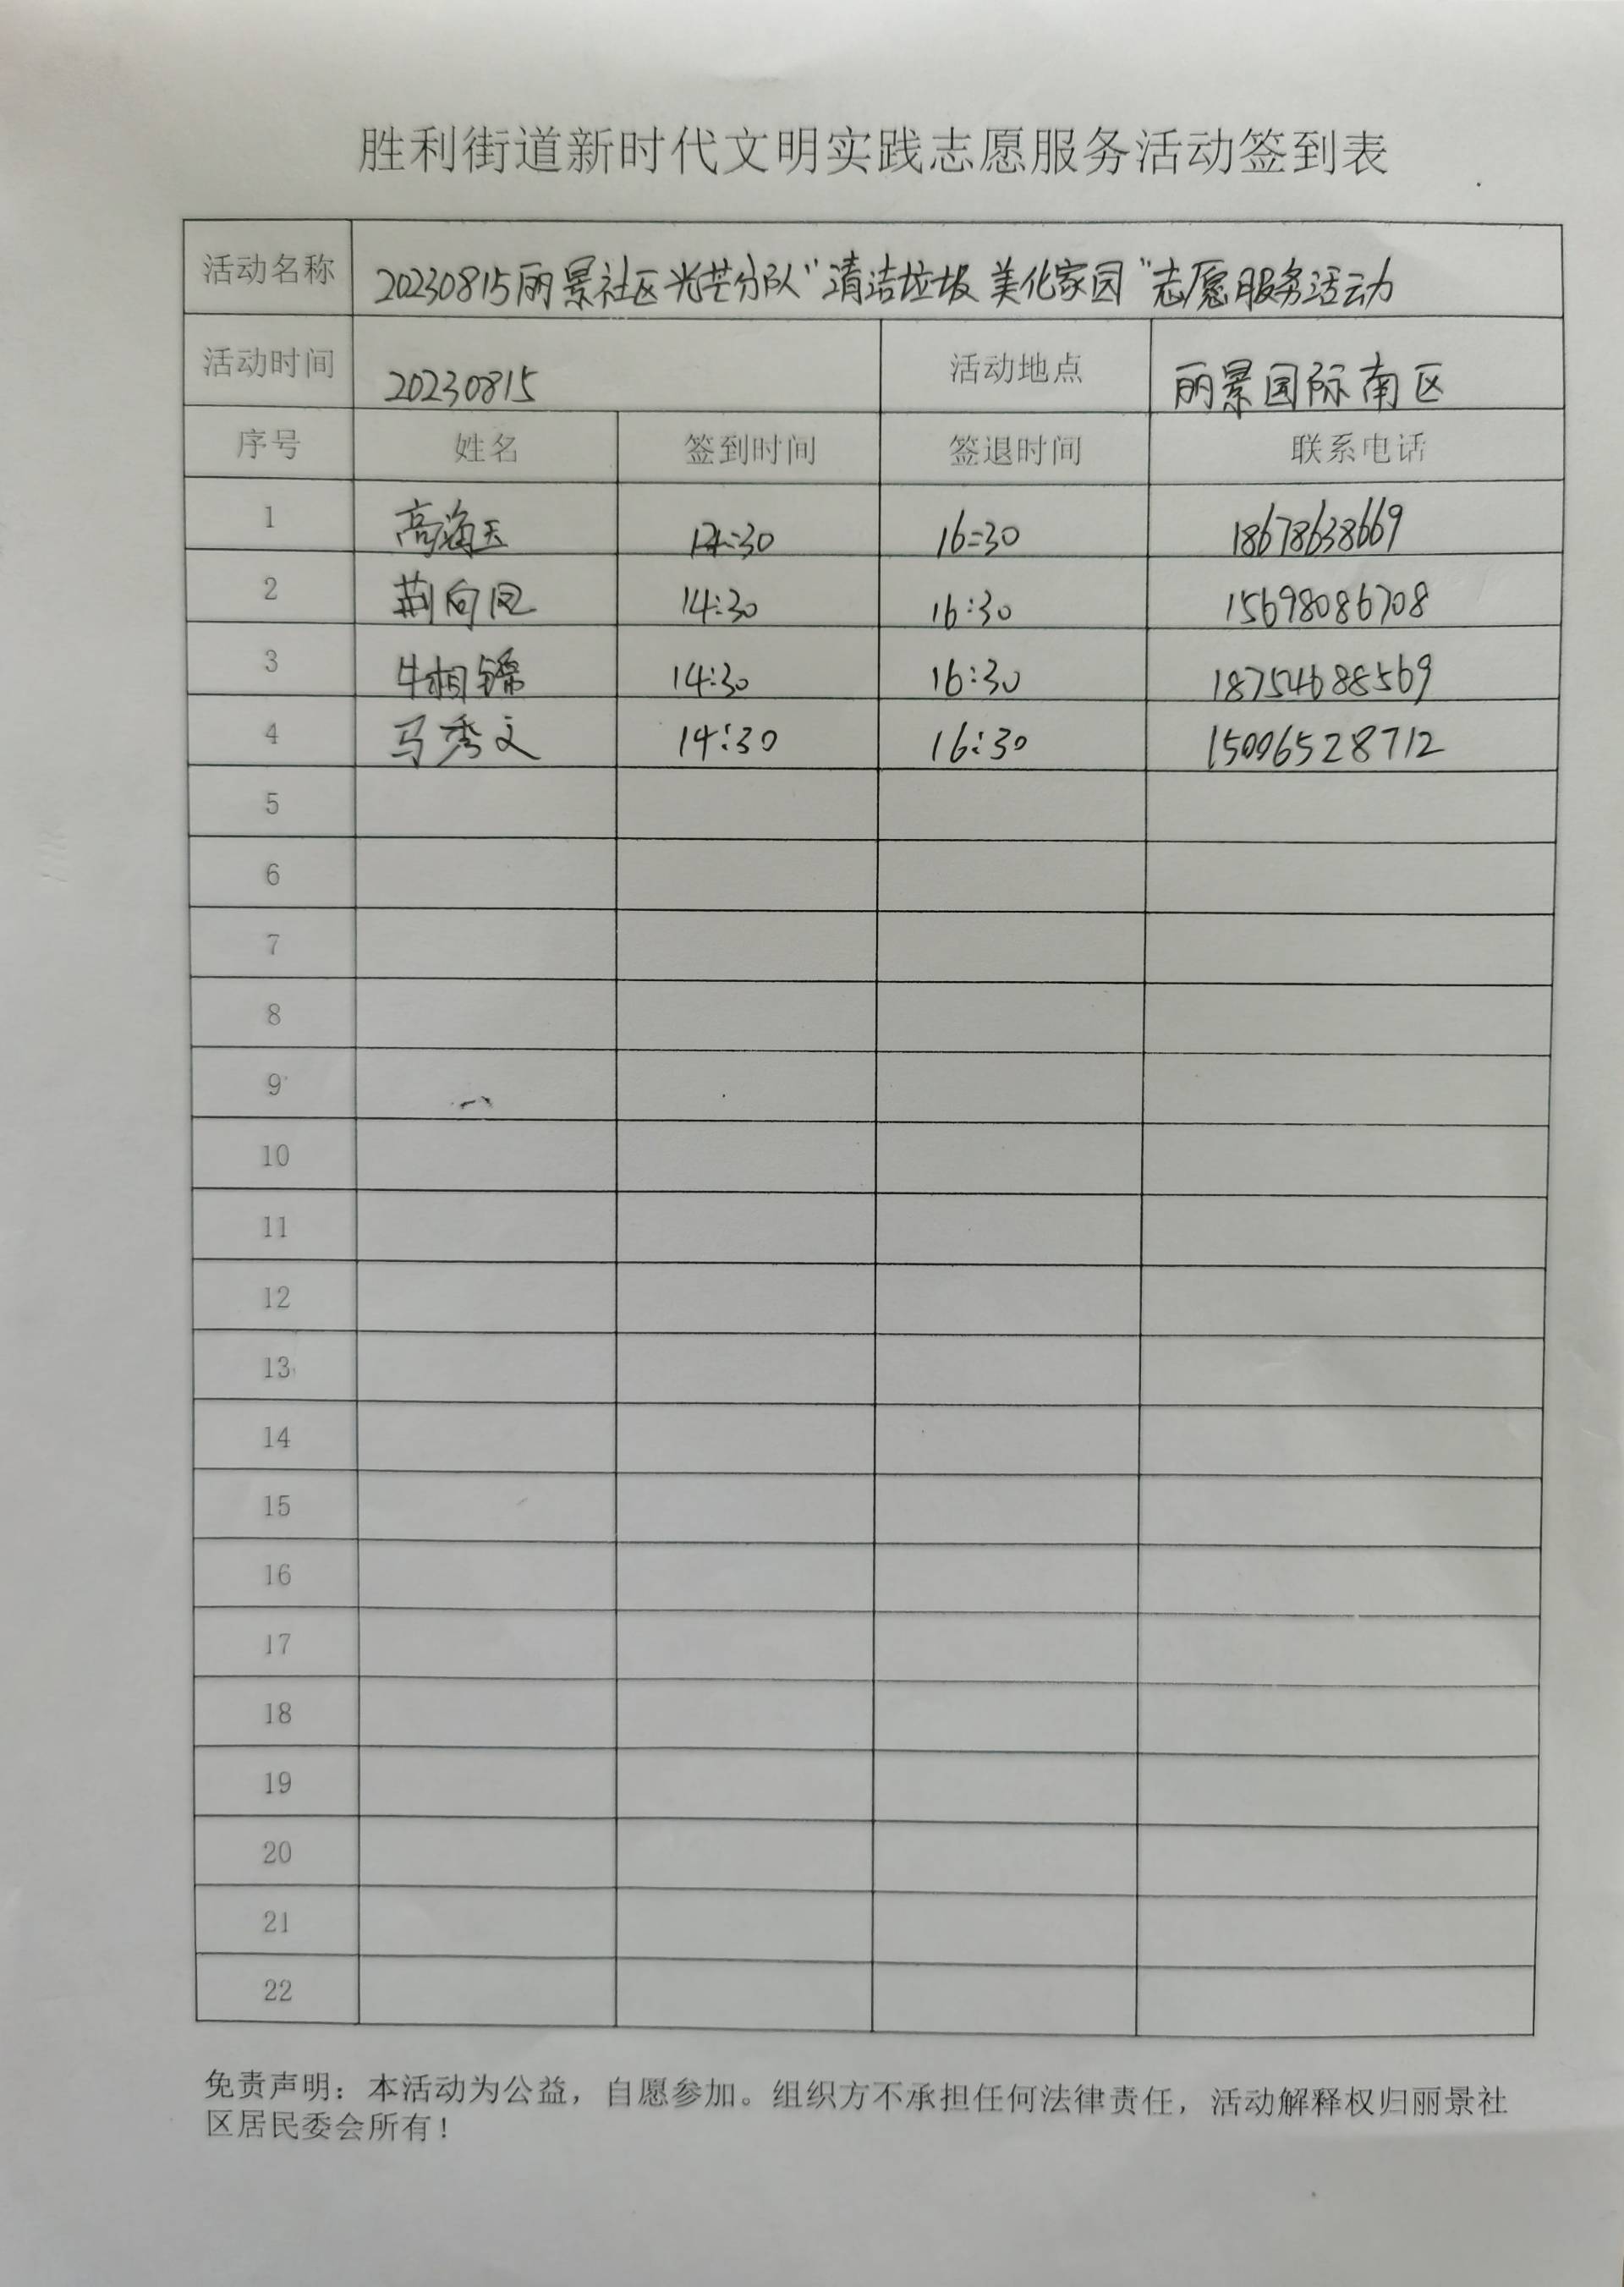 胜利街道新时代文明实践志愿服务活动签到表
活动名称 20230815丽景社区光芒分队“清洁垃圾 美化家园”志愿服务活动
活动时间 20230815 活动地点 丽景国际南区
序号 姓名 签到时间 签退时间 联系电话
1 高海天 14:30 16:30 18678638669
2 荆向凤 14:30 16:30 15698086708
3 牛相锦 14:30 16:30 18754688569
4 马秀文 14:30 16:30 15006528712
5
6
7
8
9
10
11
12
13
14
15
16
17
18
19
20
21
22
免责声明：本活动为公益，自愿参加。组织方不承担任何法律责任，活动解释权归丽景社
区居民委会所有！